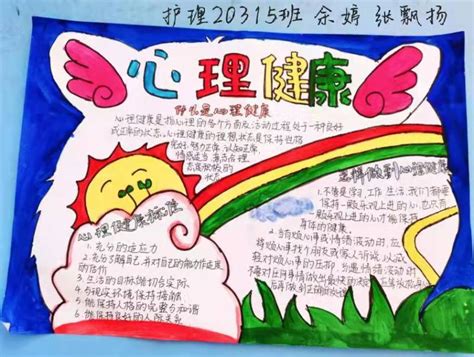 护理20315班 余婷 张飘扬
心理健康
什么是心理健康
心理健康是指心理的各个方面及活动过程处于一种良好
或正常的状态。心理健康的理想状态是保持性格
完好、智力正常、认知正确、
情感适当、意志合理、
态度积极的
状态
怎样做到心理健康
1.不管是学习、工作、生活,我们都要
保持一颗乐观上进的心,也只有
一颗乐观上进的心才能保持
身体的健康。
2.当有烦心事或情绪波动时,应
将烦心事找个朋友或家人诉说,以减
轻对烦心事的压抑
心理健康标准
1.充分的适应力
2.充分了解自己,并对自己的能力作适度
的估价
3.生活的目标能切合实际
4.与现实环境保持接触
5.能保持人格的完整与和谐
6.能保持良好的人际关系